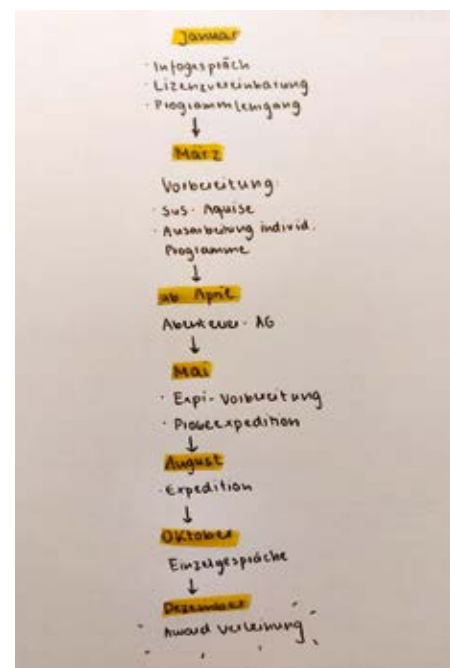 Januar
· Infogespräch
· Lizenzvereinbarung
· Programmlehrgang
↓
März
Vorbereitung:
· SuS- Aquise
· Ausarbeitung individ.
Programme
↓
ab April
Abenteuer- AG
↓
Mai
· Expi- Vorbereitung
· Probeexpedition
↓
August
· Expedition
↓
Oktober
Einzelgespräche
↓
Dezember
Award Verleihung